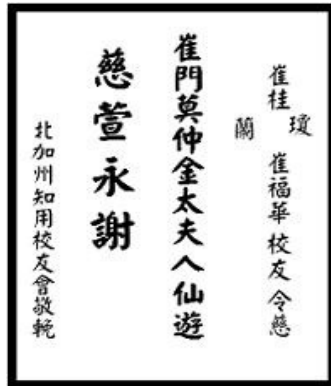 崔桂瓊
蘭
崔福華校友令慈
崔門莫仲金太夫人仙遊
慈萱永謝
北加州知用校友會敬輓